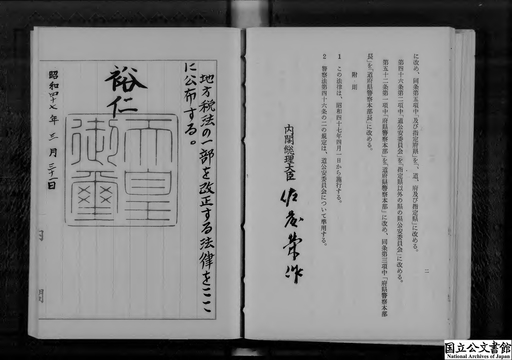 に改め、同条第五項中「及び指定府県」を「、道、府及び指定県」に改める。
第四十六条第二項中「道公安委員会」を「指定県以外の県の県公安委員会」に改める。
第五十二条第一項中「府県警察本部」を「道府県警察本部」に改め、同条第三項中「府県警察本部
長」を「道府県警察本部長」に改める。
附 則
1 この法律は、昭和四十七年四月一日から施行する。
2 警察法第四十六条の二の規定は、道公安委員会について準用する。
内閣総理大臣 佐藤榮作
二
地方税法の一部を改正する法律をここ
に公布する。
裕仁
天皇御璽
昭和四十七年三月三十一日
国立公文書館
National Archives of Japan